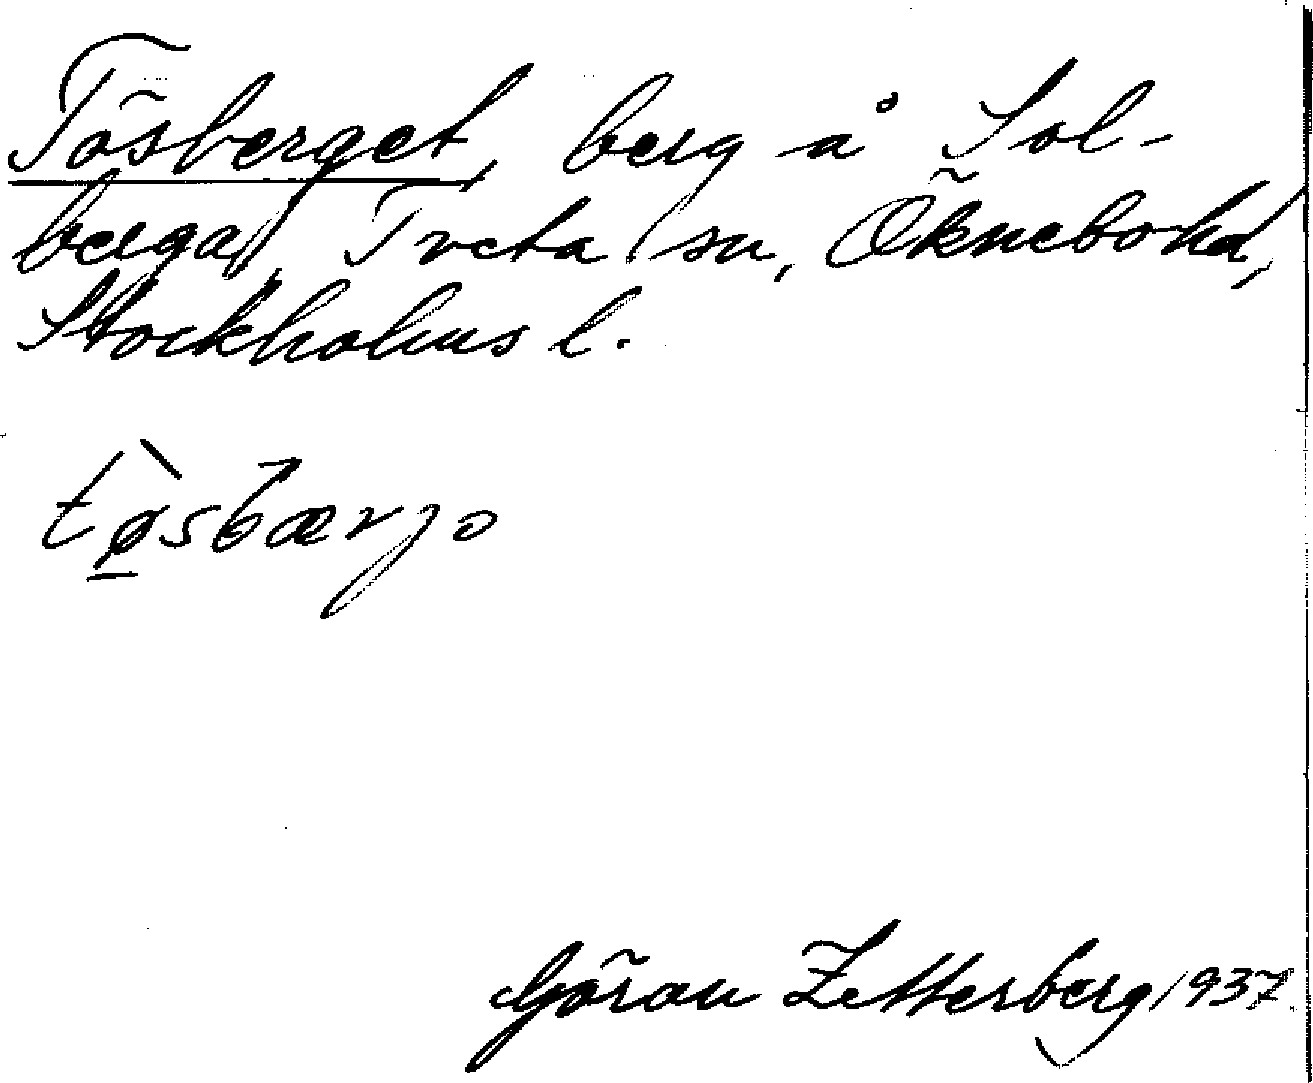 Tösberget, berg å Sol-
berga, Tveta sn, Öknebo hd,
Stockholms l.
tø̠̀sbærjo
Göran Zetterberg 1937.